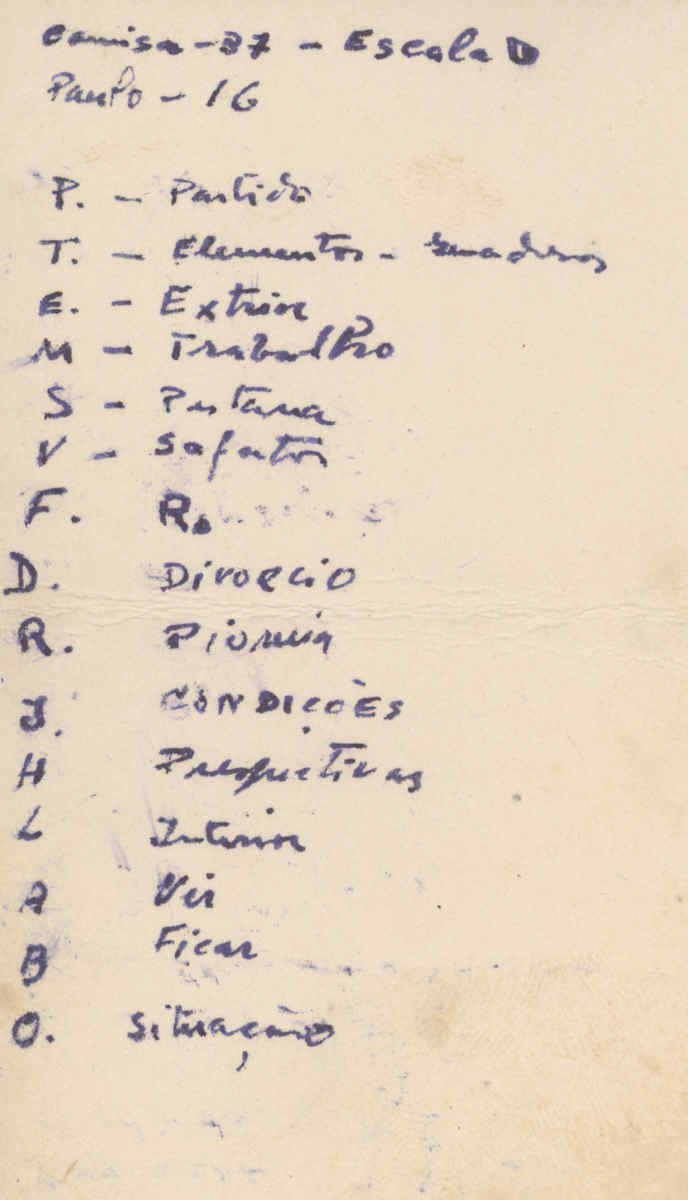 Camisa - 37 - Escala D
Paulo - 16
P. - Partido
T. - Elementos -
E. - Extrior
M - Trabalho
S - Pestana
V - Safatos
F. Ro
D. Divorcio
R. Piormia
J. CONDIÇÕES
H Prespectivas
L Interior
A Vir
B Ficar
O. Situação